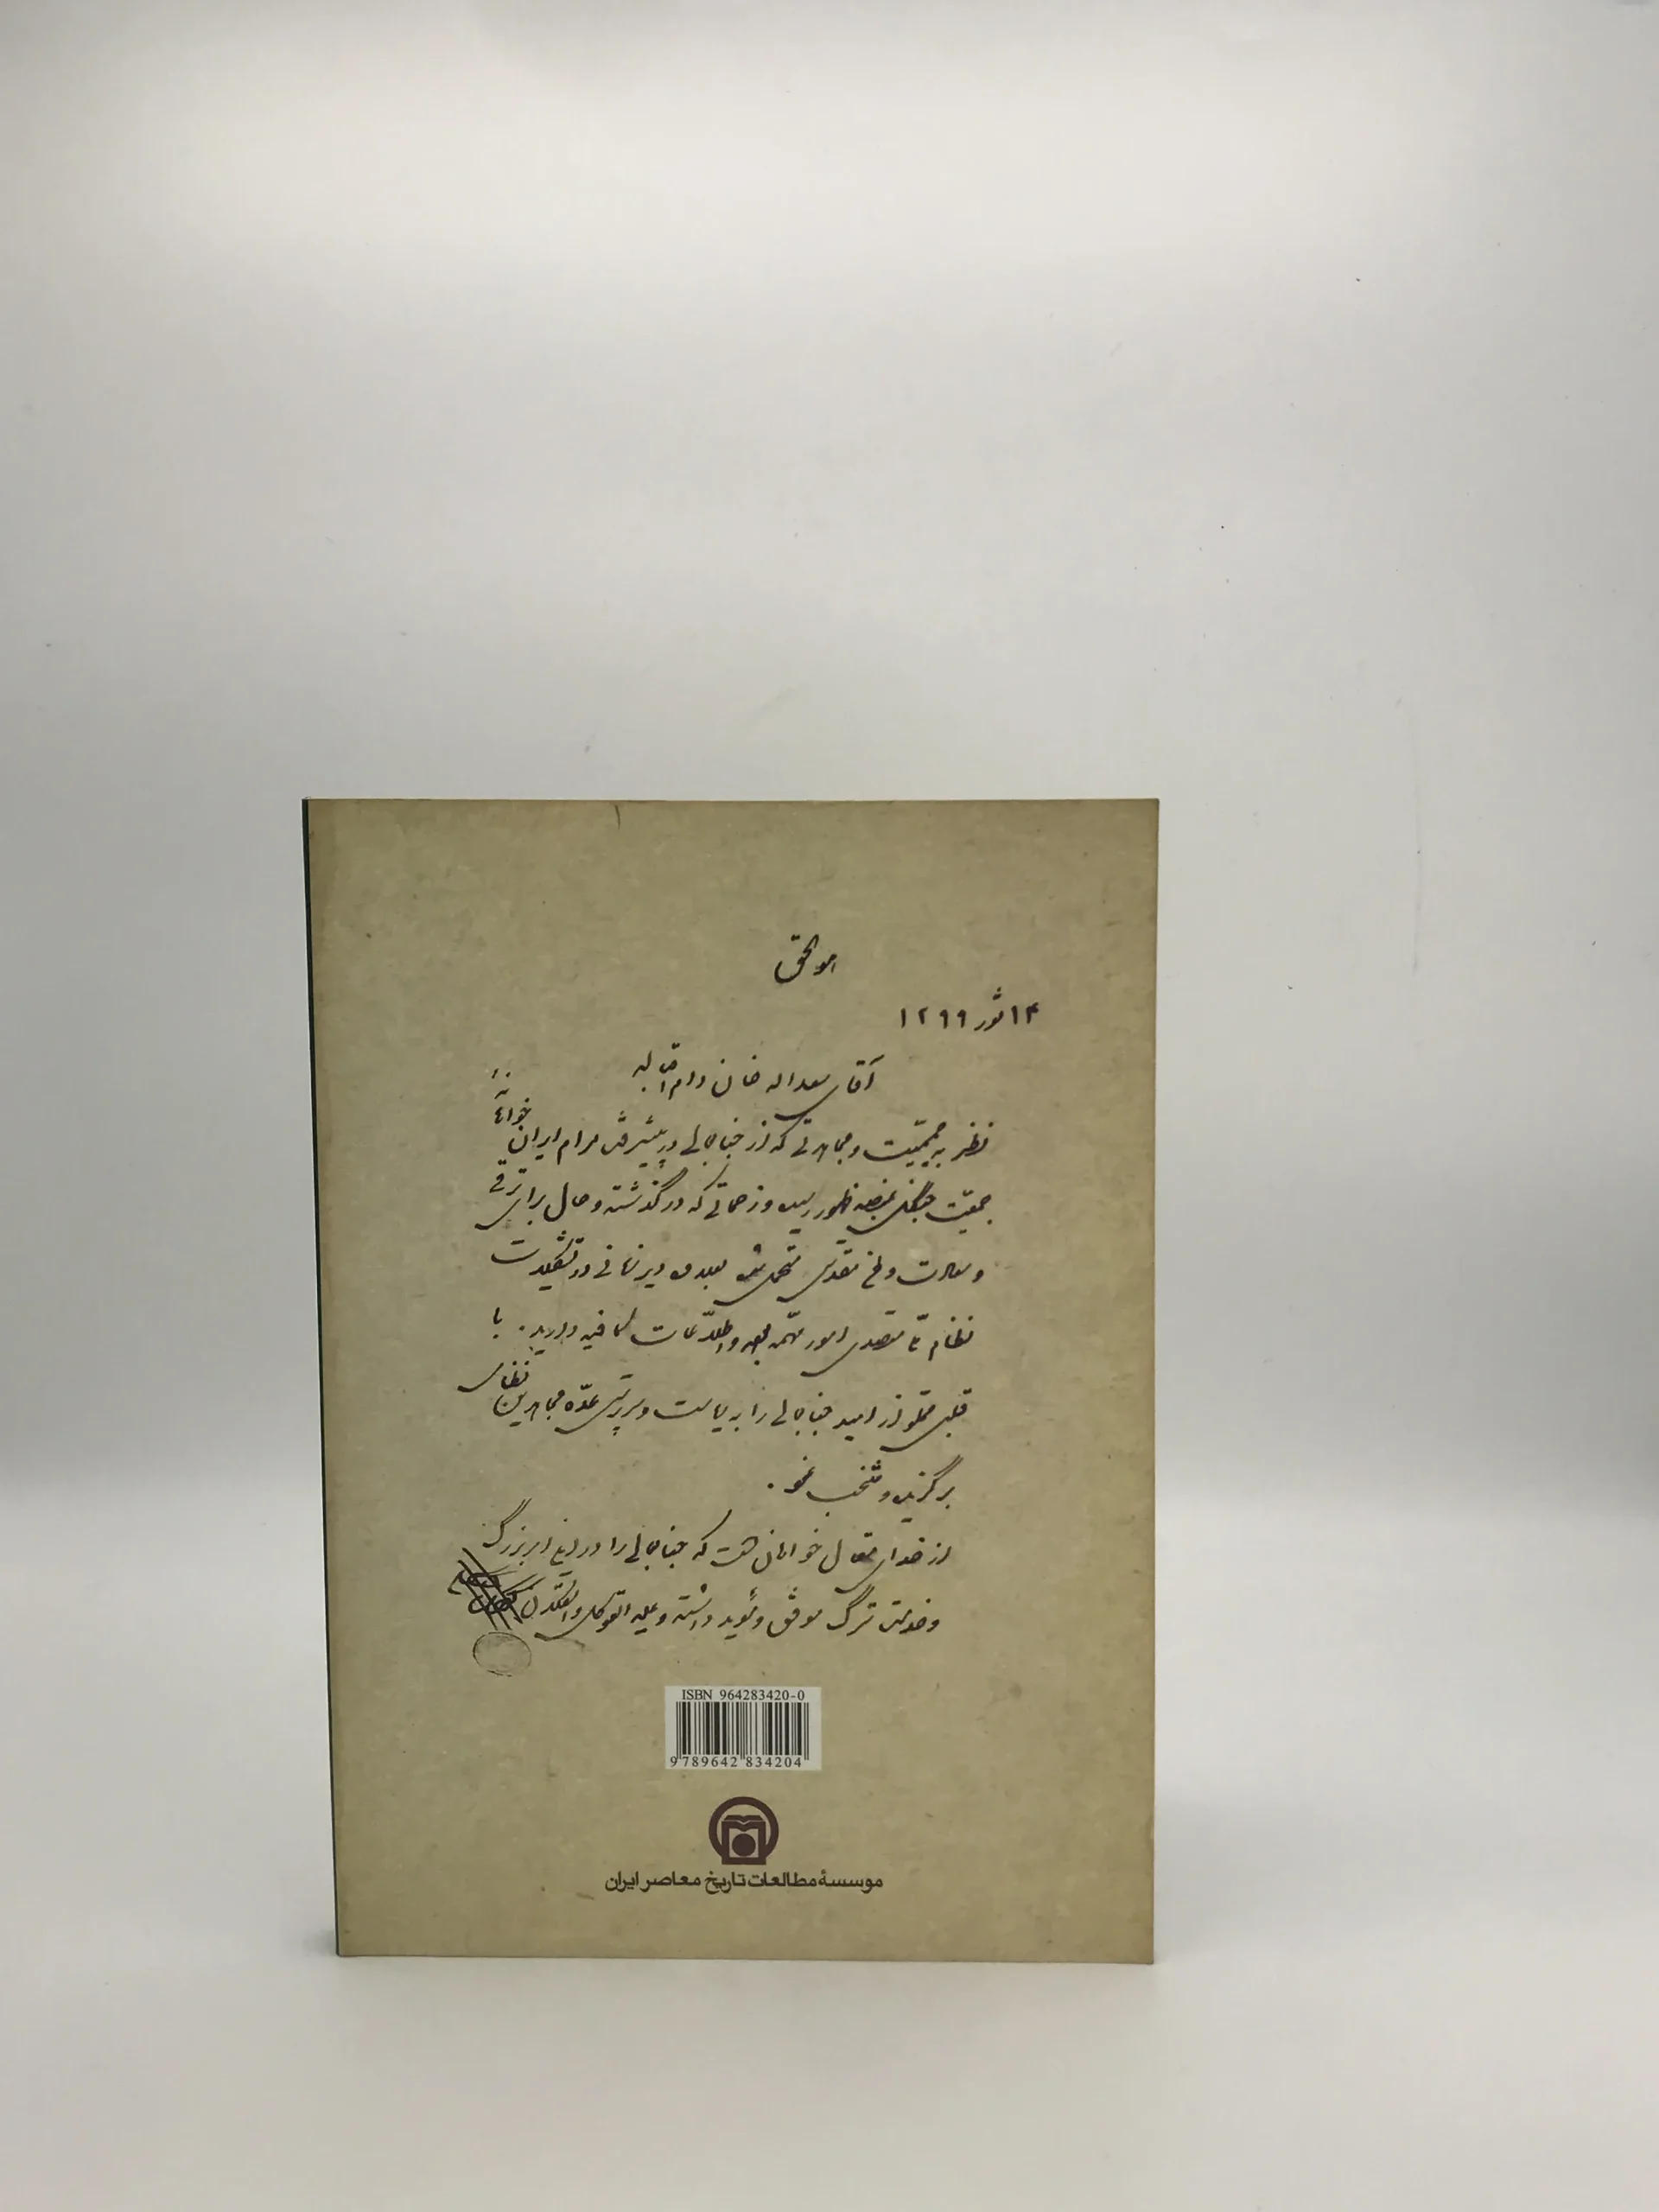 هوالحق
۱۴ ثور ۱۲۹۹
آقای سعداله خان دام اقباله
نظر به صمیمیت و مجاهدتی که از جنابعالی در پیشرفت مرام ایران خواهانه
جمعیت جنگل بمنصه ظهور رسیده و زحماتی که در گذشته و حال برای ترقی
و سعادت وطن مقدس متحمل شده و در تشکیلات
نظام تا متصدی امور مهمه بوده و اطلاعات کافیه دارید. با
قلبی مملو از امید جنابعالی را به ریاست و سرپرستی عده مجاهدین نظامی
برگزیده و منتخب نمود.
از خدای متعال خواهان است که جنابعالی را در این امر بزرگ
و خدمت سترگ موفق و مؤید داشته و علیه التوکل
ISBN 964283420-0
9 789642 834204
موسسهٔ مطالعات تاریخ معاصر ایران